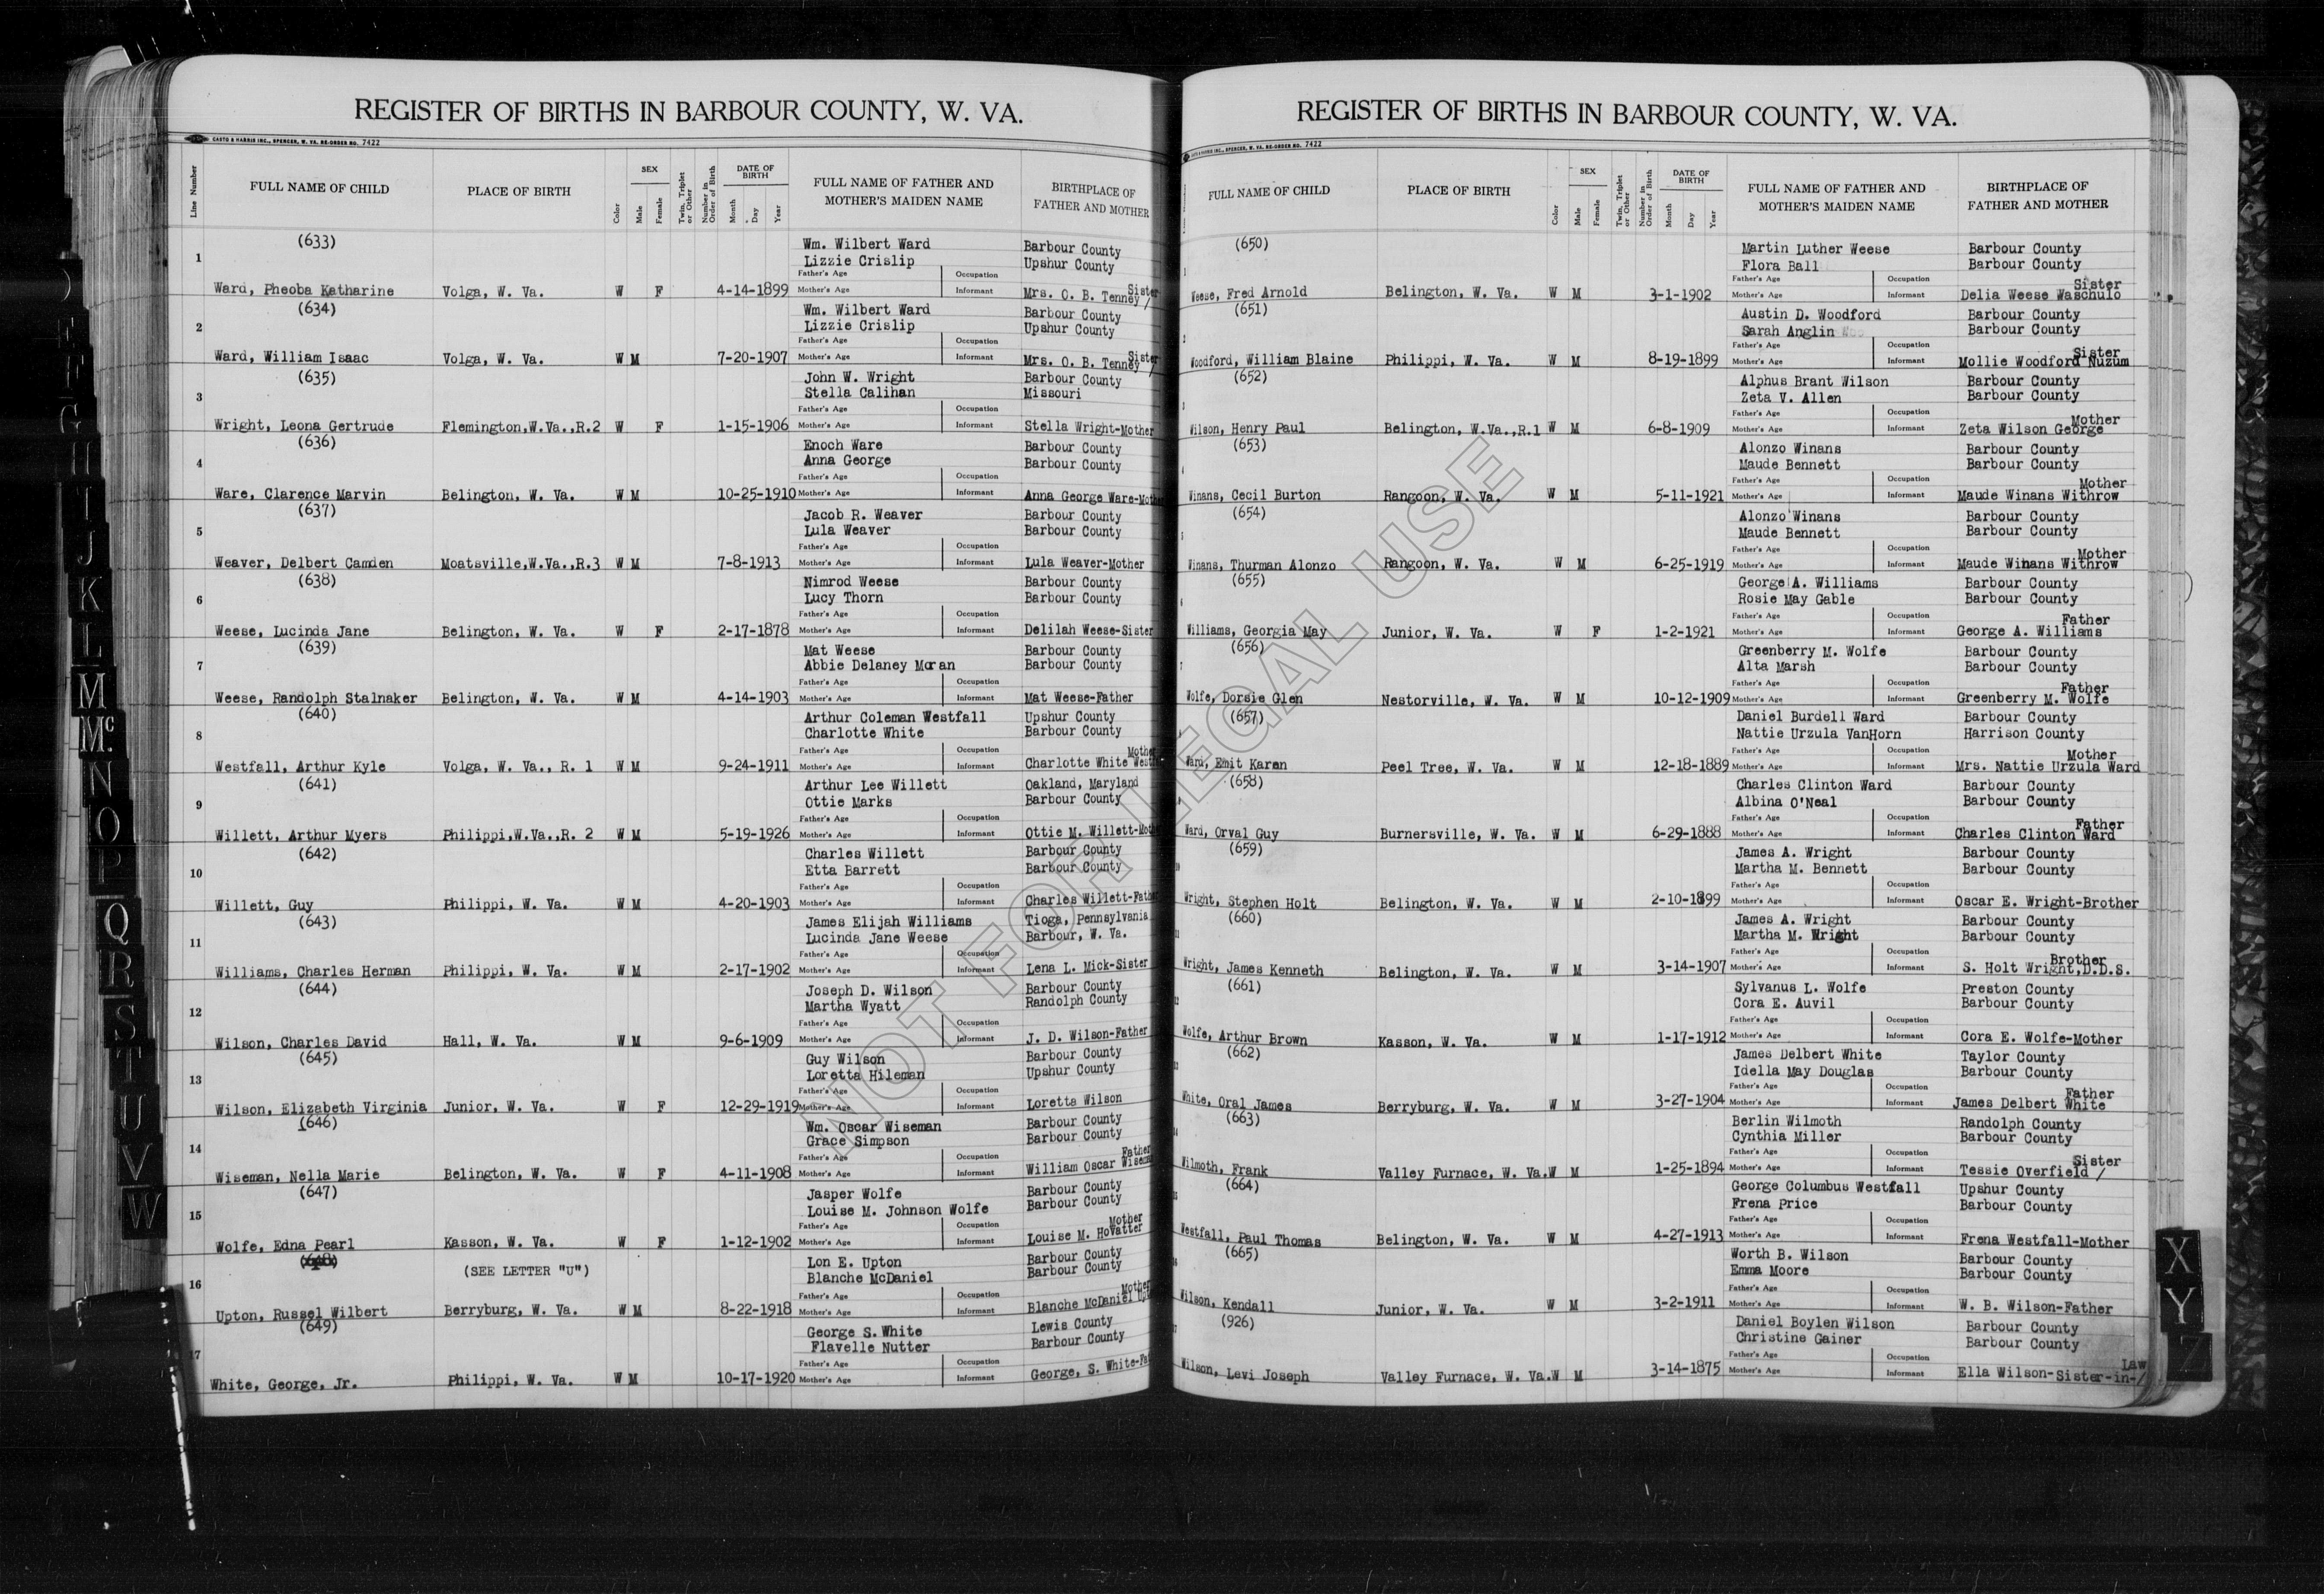 REGISTER OF BIRTHS IN BARBOUR COUNTY, W. VA.
CASTO & HARRIS INC., SPENCER, W. VA. RE-ORDER NO. 7422
Line Number FULL NAME OF CHILD PLACE OF BIRTH Color SEX Male Female Twin, Triplet or Other Number in Order of Birth DATE OF BIRTH Month Day Year FULL NAME OF FATHER AND MOTHER'S MAIDEN NAME BIRTHPLACE OF FATHER AND MOTHER
1 (633) Wm. Wilbert Ward Barbour County
Lizzie Crislip Upshur County
Father's Age Occupation Sister
Ward, Pheoba Katharine Volga, W. Va. W F 4-14-1899 Mother's Age Informant Mrs. O. B. Tenney/
2 (634) Wm. Wilbert Ward Barbour County
Lizzie Crislip Upshur County
Father's Age Occupation Sister
Ward, William Isaac Volga, W. Va. W M 7-20-1907 Mother's Age Informant Mrs. O. B. Tenney/
3 (635) John W. Wright Barbour County
Stella Calihan Missouri
Father's Age Occupation
Wright, Leona Gertrude Flemington,W.Va.,R.2 W F 1-15-1906 Mother's Age Informant Stella Wright-Mother
4 (636) Enoch Ware Barbour County
Anna George Barbour County
Father's Age Occupation
Ware, Clarence Marvin Belington, W. Va. W M 10-25-1910 Mother's Age Informant Anna George Ware-Mother
5 (637) Jacob R. Weaver Barbour County
Lula Weaver Barbour County
Father's Age Occupation
Weaver, Delbert Camden Moatsville,W.Va.,R.3 W M 7-8-1913 Mother's Age Informant Lula Weaver-Mother
6 (638) Nimrod Weese Barbour County
Lucy Thorn Barbour County
Father's Age Occupation
Weese, Lucinda Jane Belington, W. Va. W F 2-17-1878 Mother's Age Informant Delilah Weese-Sister
7 (639) Mat Weese Barbour County
Abbie Delaney Moran Barbour County
Father's Age Occupation
Weese, Randolph Stalnaker Belington, W. Va. W M 4-14-1903 Mother's Age Informant Mat Weese-Father
8 (640) Arthur Coleman Westfall Upshur County
Charlotte White Barbour County
Father's Age Occupation Mother
Westfall, Arthur Kyle Volga, W. Va., R. 1 W M 9-24-1911 Mother's Age Informant Charlotte White
9 (641) Arthur Lee Willett Oakland, Maryland
Ottie Marks Barbour County
Father's Age Occupation
Willett, Arthur Myers Philippi,W.Va.,R. 2 W M 5-19-1926 Mother's Age Informant Ottie M. Willett-Moth
10 (642) Charles Willett Barbour County
Etta Barrett Barbour County
Father's Age Occupation
Willett, Guy Philippi, W. Va. W M 4-20-1903 Mother's Age Informant Charles Willett-Father
11 (643) James Elijah Williams Tioga, Pennsylvania
Lucinda Jane Weese Barbour, W. Va.
Father's Age Occupation
Williams, Charles Herman Philippi, W. Va. W M 2-17-1902 Mother's Age Informant Lena L. Mick-Sister
12 (644) Joseph D. Wilson Barbour County
Martha Wyatt Randolph County
Father's Age Occupation
Wilson, Charles David Hall, W. Va. W M 9-6-1909 Mother's Age Informant J. D. Wilson-Father
13 (645) Guy Wilson Barbour County
Loretta Hileman Upshur County
Father's Age Occupation
Wilson, Elizabeth Virginia Junior, W. Va. W F 12-29-1919 Mother's Age Informant Loretta Wilson
14 (646) Wm. Oscar Wiseman Barbour County
Grace Simpson Barbour County
Father's Age Occupation Father
Wiseman, Nella Marie Belington, W. Va. W F 4-11-1908 Mother's Age Informant William Oscar Wisema
15 (647) Jasper Wolfe Barbour County
Louise M. Johnson Wolfe Barbour County
Father's Age Occupation Mother
Wolfe, Edna Pearl Kasson, W. Va. W F 1-12-1902 Mother's Age Informant Louise M. Hovatter
16 (648) (SEE LETTER "U") Lon E. Upton Barbour County
Blanche McDaniel Barbour County
Father's Age Occupation Mother
Upton, Russel Wilbert Berryburg, W. Va. W M 8-22-1918 Mother's Age Informant Blanche McDaniel
17 (649) George S. White Lewis County
Flavelle Nutter Barbour County
Father's Age Occupation
White, George, Jr. Philippi, W. Va. W M 10-17-1920 Mother's Age Informant George, S. White-Fa
REGISTER OF BIRTHS IN BARBOUR COUNTY, W. VA.
CASTO & HARRIS INC., SPENCER, W. VA. RE-ORDER NO. 7422
FULL NAME OF CHILD PLACE OF BIRTH Color SEX Male Female Twin, Triplet or Other Number in Order of Birth DATE OF BIRTH Month Day Year FULL NAME OF FATHER AND MOTHER'S MAIDEN NAME BIRTHPLACE OF FATHER AND MOTHER
(650) Martin Luther Weese Barbour County
Flora Ball Barbour County
Father's Age Occupation Sister
Weese, Fred Arnold Belington, W. Va. W M 3-1-1902 Mother's Age Informant Delia Weese Waschulo
(651) Austin D. Woodford Barbour County
Sarah Anglin Barbour County
Father's Age Occupation Sister
Woodford, William Blaine Philippi, W. Va. W M 8-19-1899 Mother's Age Informant Mollie Woodford Nuzum
(652) Alphus Brant Wilson Barbour County
Zeta V. Allen Barbour County
Father's Age Occupation Mother
Wilson, Henry Paul Belington, W.Va.,R.1 W M 6-8-1909 Mother's Age Informant Zeta Wilson George
(653) Alonzo Winans Barbour County
Maude Bennett Barbour County
Father's Age Occupation Mother
Winans, Cecil Burton Rangoon, W. Va. W M 5-11-1921 Mother's Age Informant Maude Winans Withrow
(654) Alonzo Winans Barbour County
Maude Bennett Barbour County
Father's Age Occupation Mother
Winans, Thurman Alonzo Rangoon, W. Va. W M 6-25-1919 Mother's Age Informant Maude Winans Withrow
(655) George A. Williams Barbour County
Rosie May Gable Barbour County
Father's Age Occupation Father
Williams, Georgia May Junior, W. Va. W F 1-2-1921 Mother's Age Informant George A. Williams
(656) Greenberry M. Wolfe Barbour County
Alta Marsh Barbour County
Father's Age Occupation Father
Wolfe, Dorsie Glen Nestorville, W. Va. W M 10-12-1909 Mother's Age Informant Greenberry M. Wolfe
(657) Daniel Burdell Ward Barbour County
Nattie Urzula VanHorn Harrison County
Father's Age Occupation Mother
Ward, Emit Karan Peel Tree, W. Va. W M 12-18-1889 Mother's Age Informant Mrs. Nattie Urzula Ward
(658) Charles Clinton Ward Barbour County
Albina O'Neal Barbour County
Father's Age Occupation Father
Ward, Orval Guy Burnersville, W. Va. W M 6-29-1888 Mother's Age Informant Charles Clinton Ward
(659) James A. Wright Barbour County
Martha M. Bennett Barbour County
Father's Age Occupation
Wright, Stephen Holt Belington, W. Va. W M 2-10-1899 Mother's Age Informant Oscar E. Wright-Brother
(660) James A. Wright Barbour County
Martha M. Wright Barbour County
Father's Age Occupation Brother
Wright, James Kenneth Belington, W. Va. W M 3-14-1907 Mother's Age Informant S. Holt Wright,D.D.S.
(661) Sylvanus L. Wolfe Preston County
Cora E. Auvil Barbour County
Father's Age Occupation
Wolfe, Arthur Brown Kasson, W. Va. W M 1-17-1912 Mother's Age Informant Cora E. Wolfe-Mother
(662) James Delbert White Taylor County
Idella May Douglas Barbour County
Father's Age Occupation Father
White, Oral James Berryburg, W. Va. W M 3-27-1904 Mother's Age Informant James Delbert White
(663) Berlin Wilmoth Randolph County
Cynthia Miller Barbour County
Father's Age Occupation Sister
Wilmoth, Frank Valley Furnace, W. Va. W M 1-25-1894 Mother's Age Informant Tessie Overfield/
(664) George Columbus Westfall Upshur County
Frena Price Barbour County
Father's Age Occupation
Westfall, Paul Thomas Belington, W. Va. W M 4-27-1913 Mother's Age Informant Frena Westfall-Mother
(665) Worth B. Wilson Barbour County
Emma Moore Barbour County
Father's Age Occupation
Wilson, Kendall Junior, W. Va. W M 3-2-1911 Mother's Age Informant W. B. Wilson-Father
(926) Daniel Boylen Wilson Barbour County
Christine Gainer Barbour County
Father's Age Occupation Law
Wilson, Levi Joseph Valley Furnace, W. Va. W M 3-14-1875 Mother's Age Informant Ella Wilson-Sister-in-/
NOT FOR LEGAL USE
F
G
H
I
J
K
L
M
Mc.
N
O
P
Q
R
S
T
U
V
W
X
Y